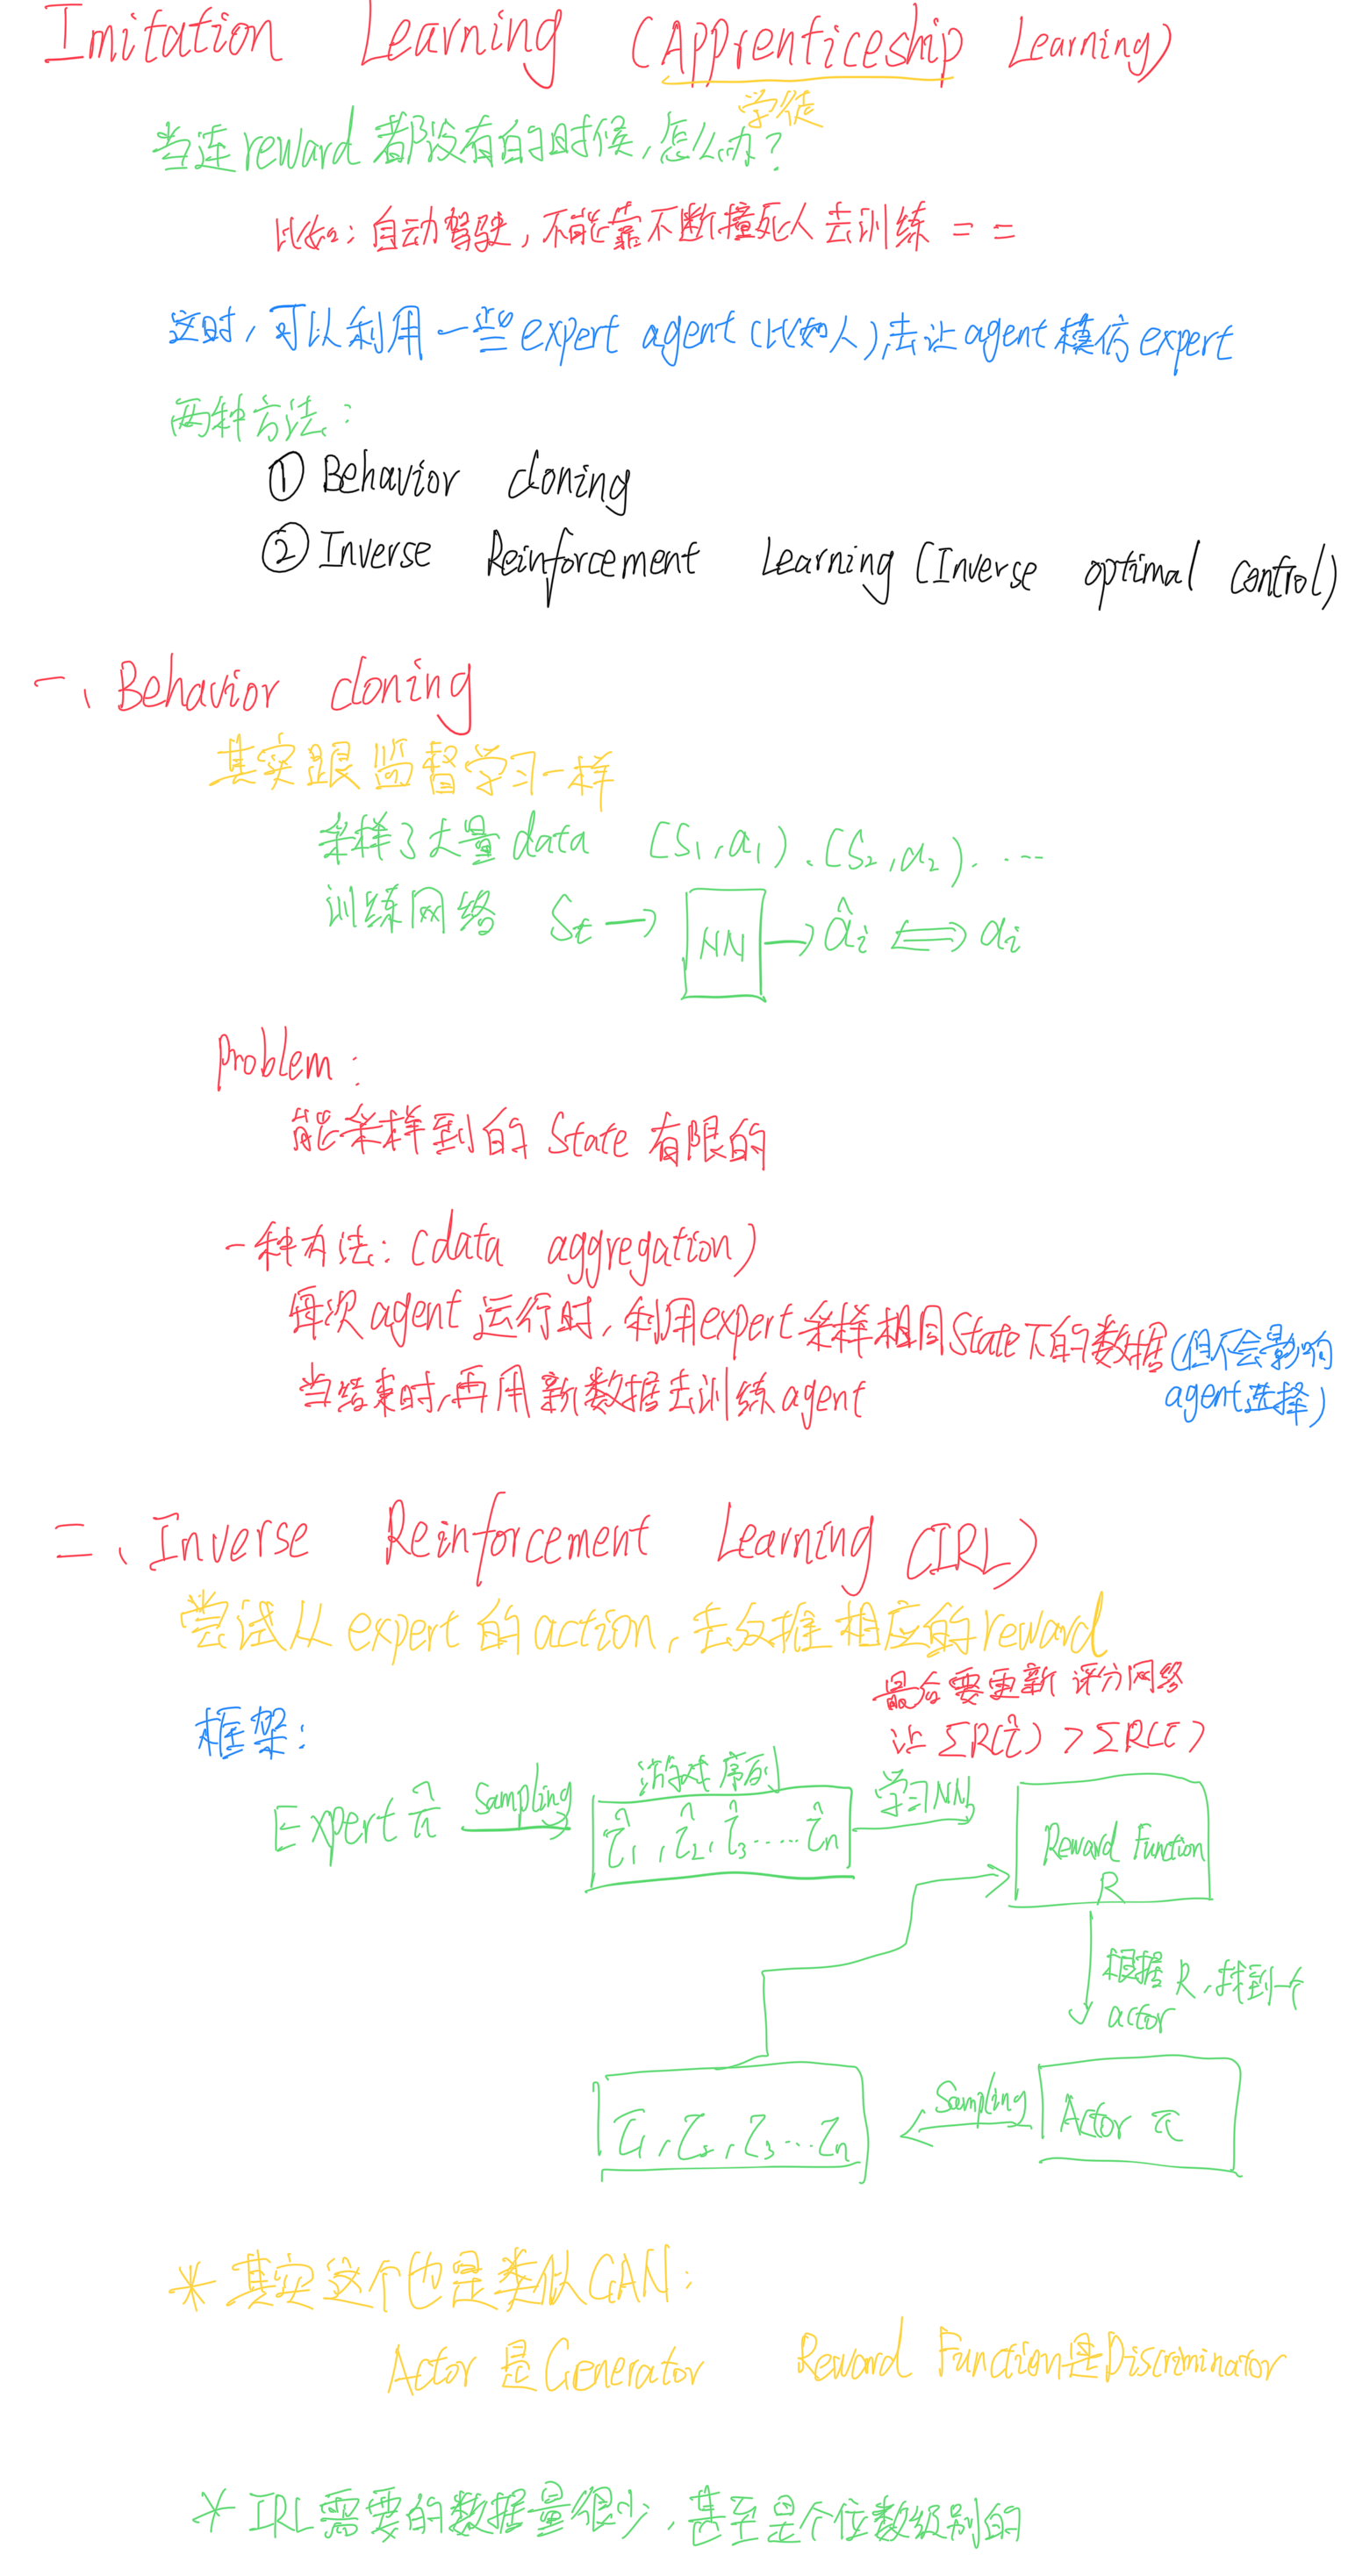 Imitation Learning (Apprenticeship Learning)
学徒
当连reward都没有的时候,怎么办?
比如:自动驾驶,不能靠不断撞死人去训练 = =
这时,可以利用一些expert agent(比如人),去让agent模仿expert
两种方法:
① Behavior cloning
② Inverse Reinforcement Learning (Inverse optimal control)
一、Behavior cloning
其实跟监督学习一样
采样了大量data (S₁,a₁).(S₂,a₂). ...
训练网络 Sₜ → NN → âᵢ ⟺ aᵢ
Problem:
能采样到的State有限的
一种方法:(data aggregation)
每次agent运行时,利用expert采样相同State下的数据(但不会影响
agent选择)
当结束时,再用新数据去训练agent
二、Inverse Reinforcement Learning (IRL)
尝试从expert的action,去反推相应的reward
最后要更新评分网络
让 ΣR(τ̂) > ΣR(τ)
框架:
Expert π̂ Sampling 游戏序列 学习NN
τ̂₁,τ̂₂,τ̂₃.....τ̂ₙ
Reward Function
R
根据R,找到一个
actor
τ₁,τ₂,τ₃...τₙ Sampling Actor π
* 其实这个也是类似GAN:
Actor是Generator Reward Function是Discriminator
* IRL需要的数据量很少,甚至是个位数级别的